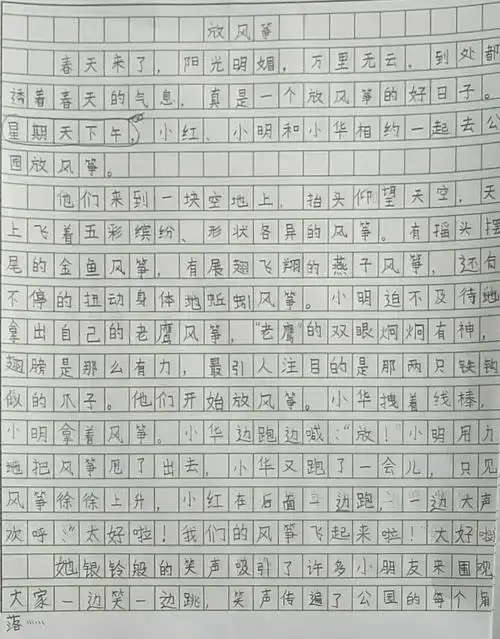 放风筝
春天来了，阳光明媚，万里无云，到处都
透着春天的气息，真是一个放风筝的好日子。
星期天下午，小红、小明和小华相约一起去公
园放风筝。
他们来到一块空地上，抬头仰望天空，天
上飞着五彩缤纷、形状各异的风筝。有摇头摆
尾的金鱼风筝，有展翅飞翔的燕子风筝，还有
不停的扭动身体地蚯蚓风筝。小明迫不及待地
拿出自己的老鹰风筝，“老鹰”的双眼炯炯有神，
翅膀是那么有力，最引人注目的是那两只铁钩
似的爪子。他们开始放风筝。小华拽着线棒，
小明拿着风筝。小华边跑边喊：“放！”小明用力
地把风筝甩了出去，小华又跑了一会儿，只见
风筝徐徐上升，小红在后面一边跑，一边大声
欢呼：“太好啦！我们的风筝飞起来啦！太好啦
她银铃般的笑声吸引了许多小朋友来围观
大家一边笑一边跳，笑声传遍了公园的每个角
落……